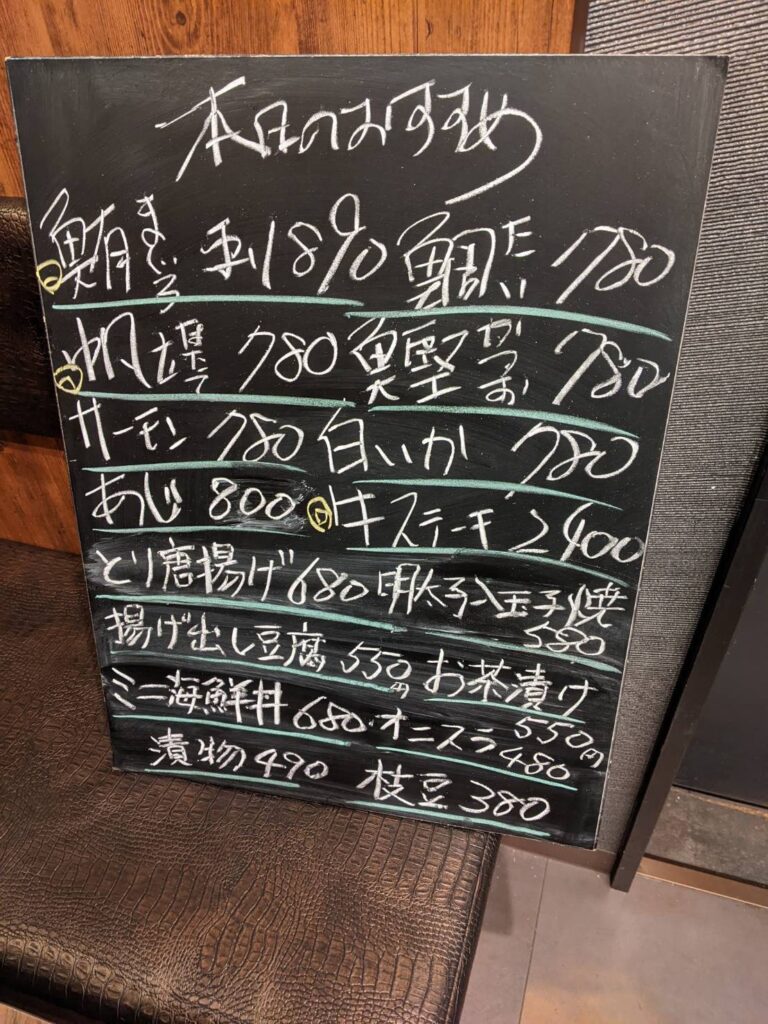 本日のおすすめ
鮪 まぐろ 1890 鯛 たい 780
帆立 ほたて 780 鰹 かつお 780
サーモン 780 白いか 780
あじ 800 牛ステーキ 2400
とり唐揚げ 680 明太子入玉子焼 580
揚げ出し豆腐 550円 お茶漬け 550円
ミニ海鮮丼 680 オニスラ 480
漬物 490 枝豆 380